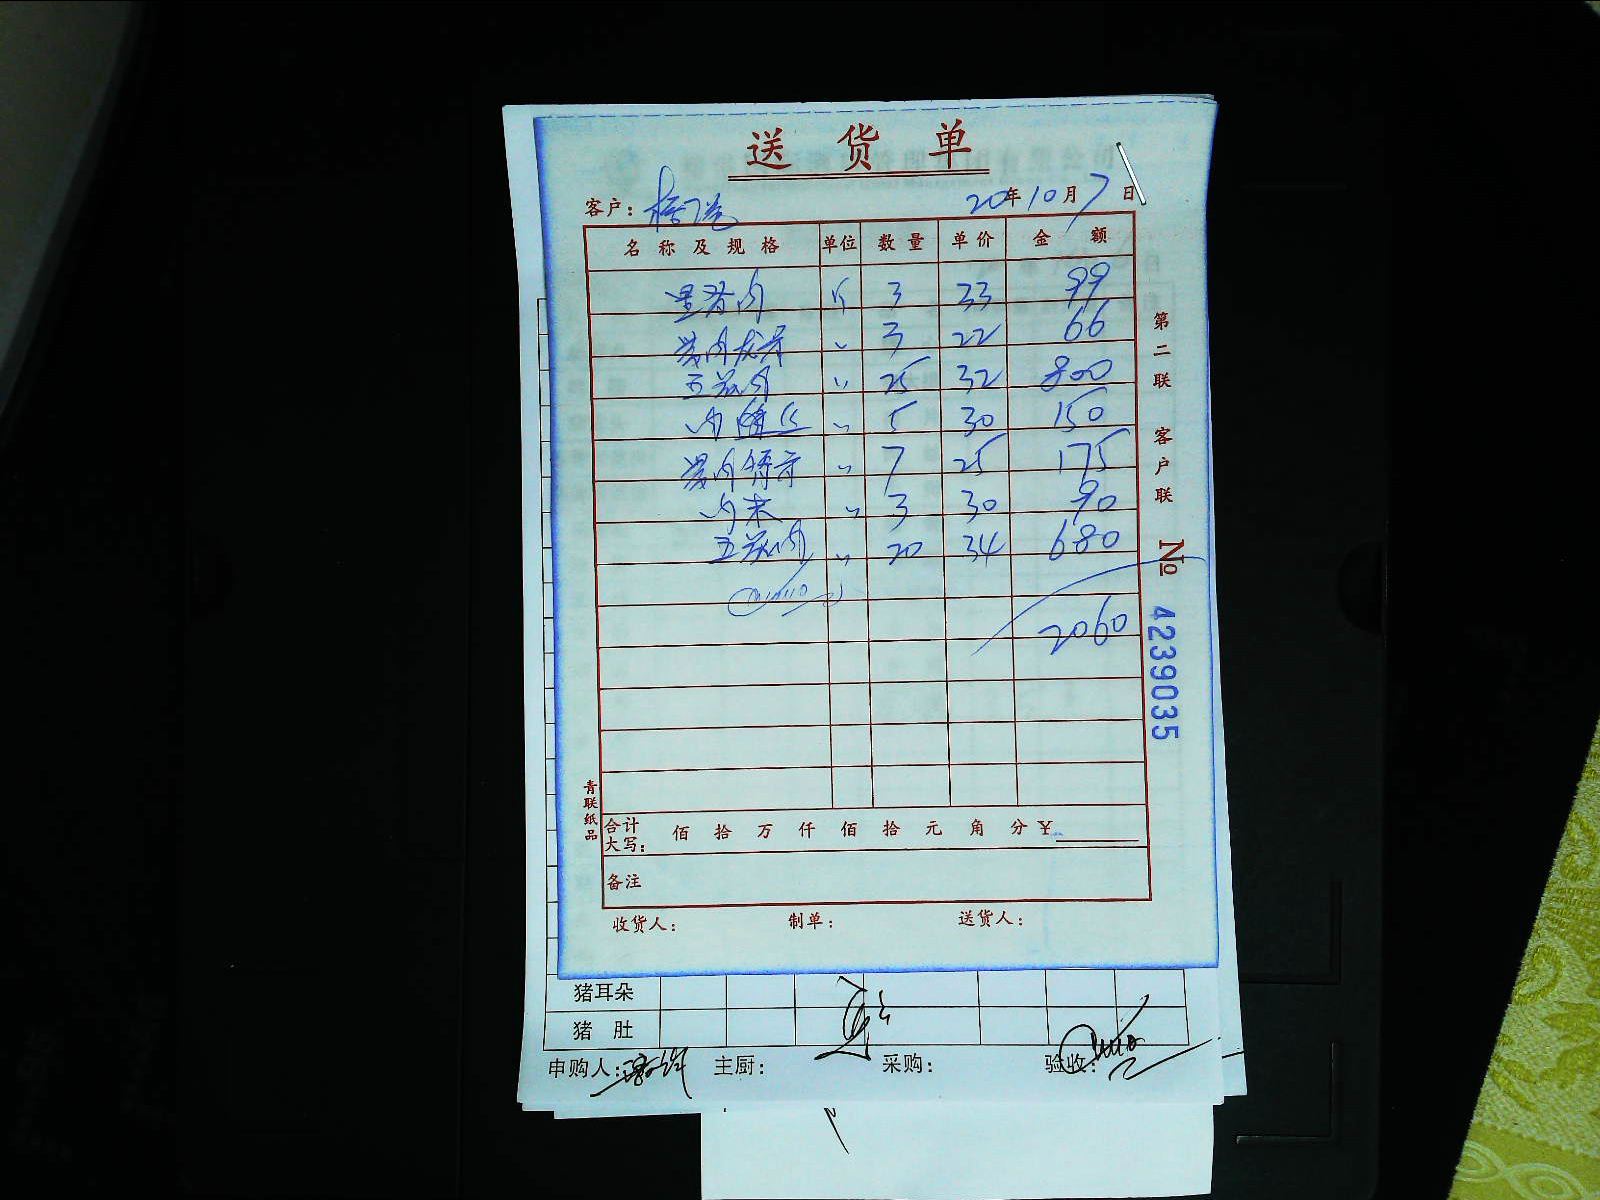 送货单
客户： 20年10月7日
名称及规格 单位 数量 单价 金额
里脊肉 斤 3 33 99
3 22 66
五花肉 〃 25 32 800
肉 丝 〃 5 30 150
7 25 175
肉末 〃 3 30 90
五花肉 〃 20 34 680
2060
合计大写： 佰 拾 万 仟 佰 拾 元 角 分 ¥
备注
收货人： 制单： 送货人：
青联纸品
第二联 客户联
№ 4239035
猪耳朵
猪肚
申购人： 主厨： 采购： 验收：